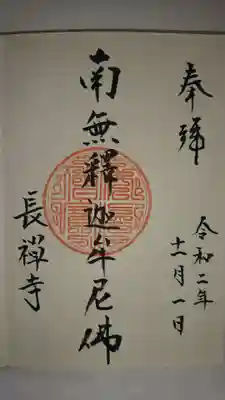 奉拝
令和二年
十二月一日
南無釋迦牟尼佛
長禅寺